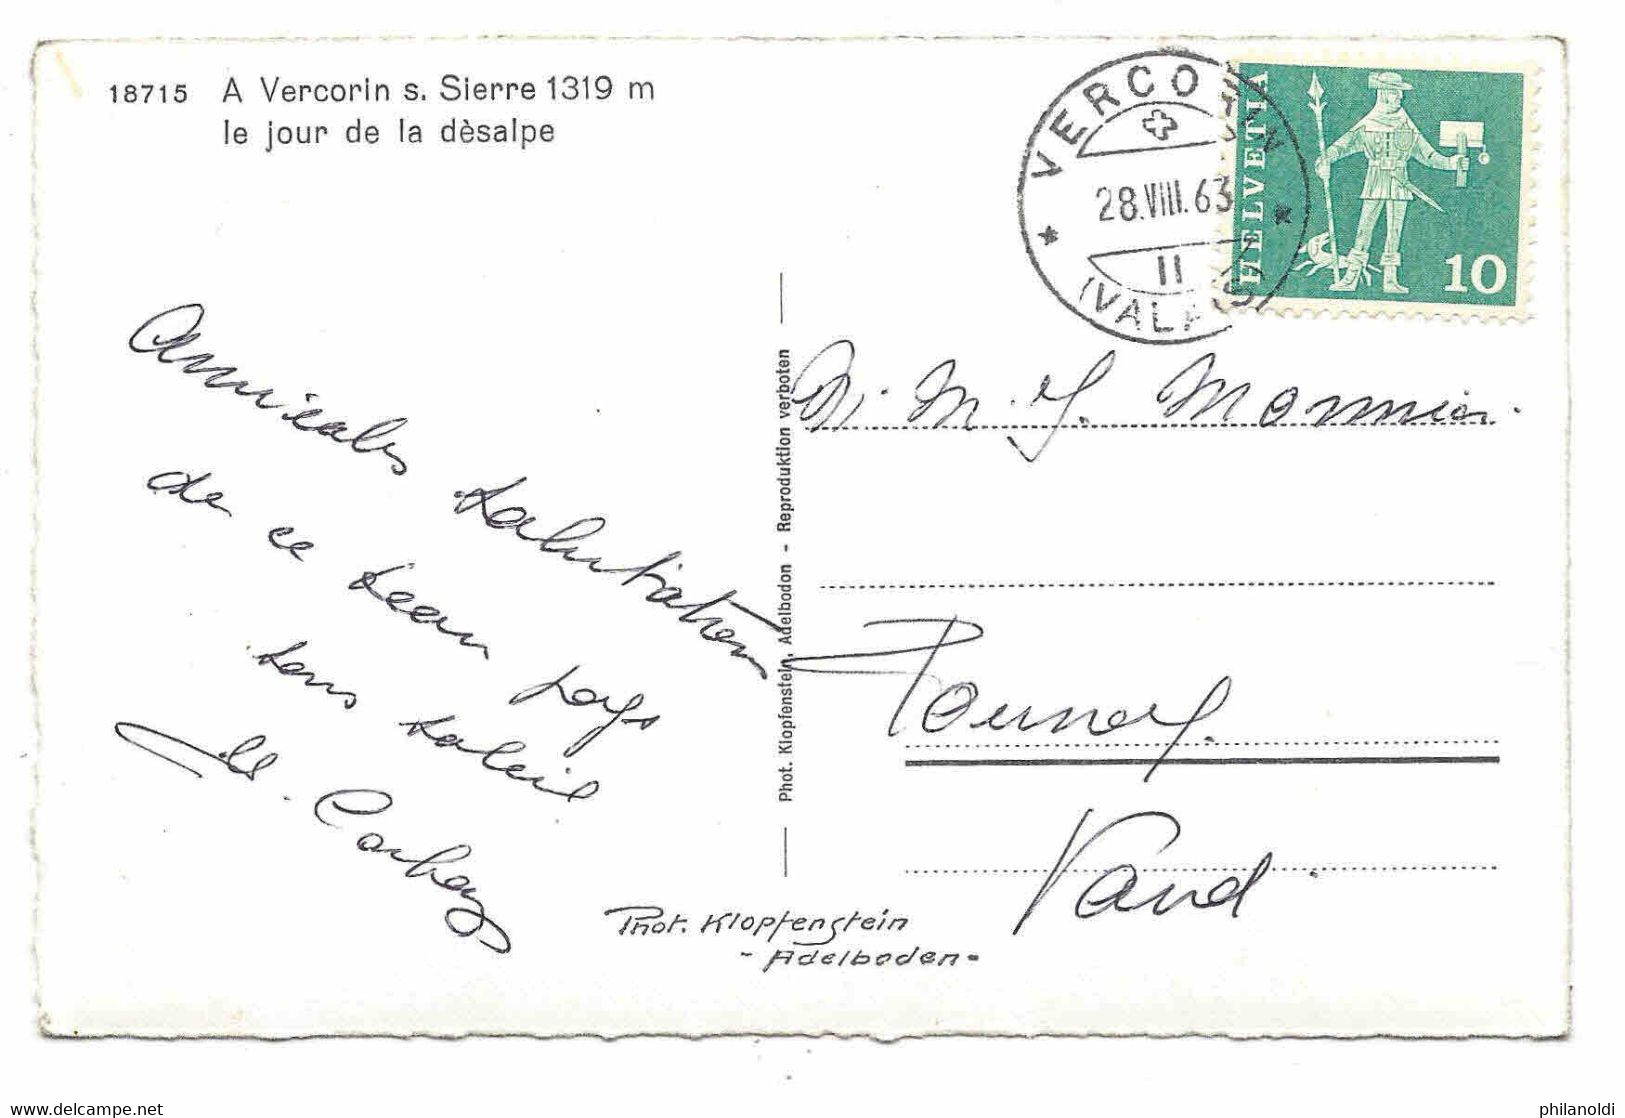 18715 A Vercorin s. Sierre 1319 m
le jour de la dèsalpe
VERCORIN
28.VIII.63
II
(VALAIS)
HELVETIA
10
Amicales salutations
de ce beau pays
sans soleil
M. Corbaz
Phot. Klopfenstein, Adelboden - Reproduktion verboten
M. J. Monnier.
Vaud
Phot. Klopfenstein
- Adelboden -
philanoldi
www.delcampe.net